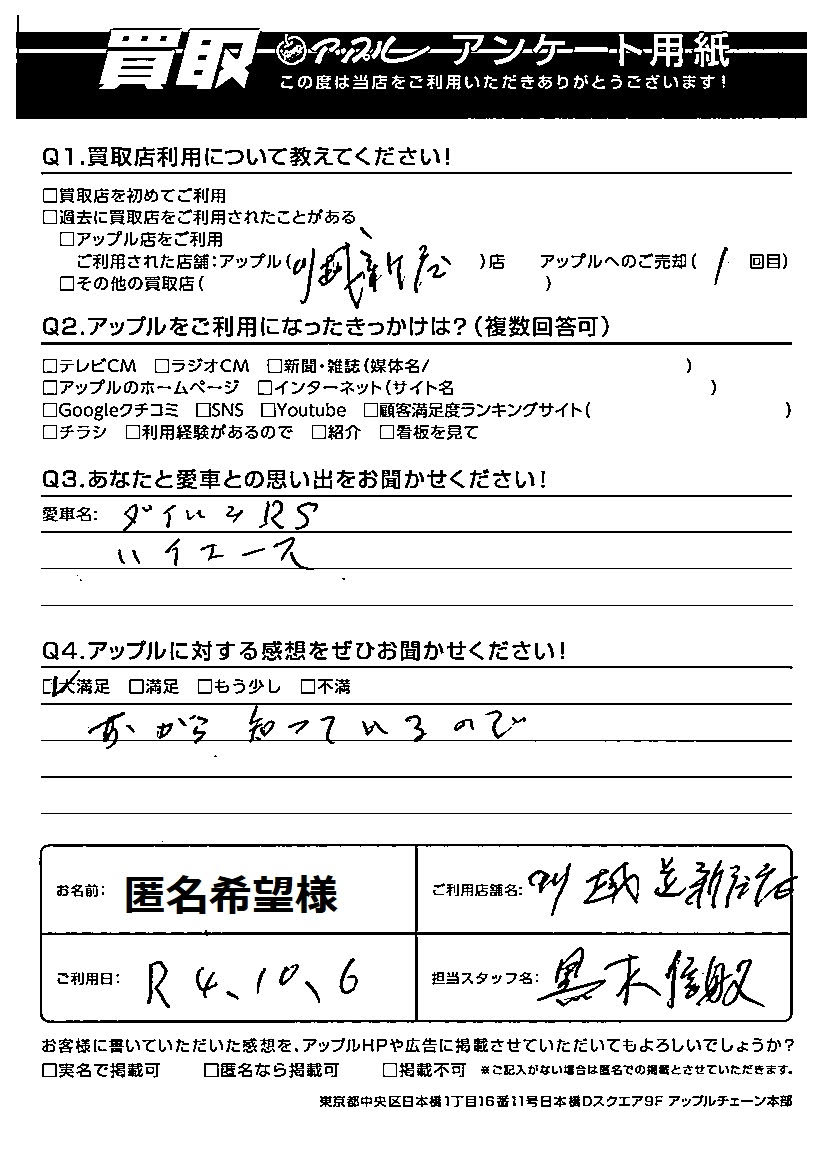 買取 アップル アンケート用紙
この度は当店をご利用いただきありがとうございます!
Q1.買取店利用について教えてください!
□買取店を初めてご利用
□過去に買取店をご利用されたことがある
□アップル店をご利用
ご利用された店舗:アップル( )店 アップルへのご売却( 1 回目)
□その他の買取店( )
Q2.アップルをご利用になったきっかけは?(複数回答可)
□テレビCM □ラジオCM □新聞・雑誌(媒体名/ )
□アップルのホームページ □インターネット(サイト名 )
□Googleクチコミ □SNS □Youtube □顧客満足度ランキングサイト( )
□チラシ □利用経験があるので □紹介 □看板を見て
Q3.あなたと愛車との思い出をお聞かせください!
愛車名: RS
ハイエース
Q4.アップルに対する感想をぜひお聞かせください!
☑大満足 □満足 □もう少し □不満
知っているので
お名前: 匿名希望様 ご利用店舗名:
ご利用日: R4、10、6 担当スタッフ名: 黒木
お客様に書いていただいた感想を、アップルHPや広告に掲載させていただいてもよろしいでしょうか?
□実名で掲載可 □匿名なら掲載可 □掲載不可 ※ご記入がない場合は匿名での掲載とさせていただきます。
東京都中央区日本橋1丁目16番11号日本橋Dスクエア9F アップルチェーン本部